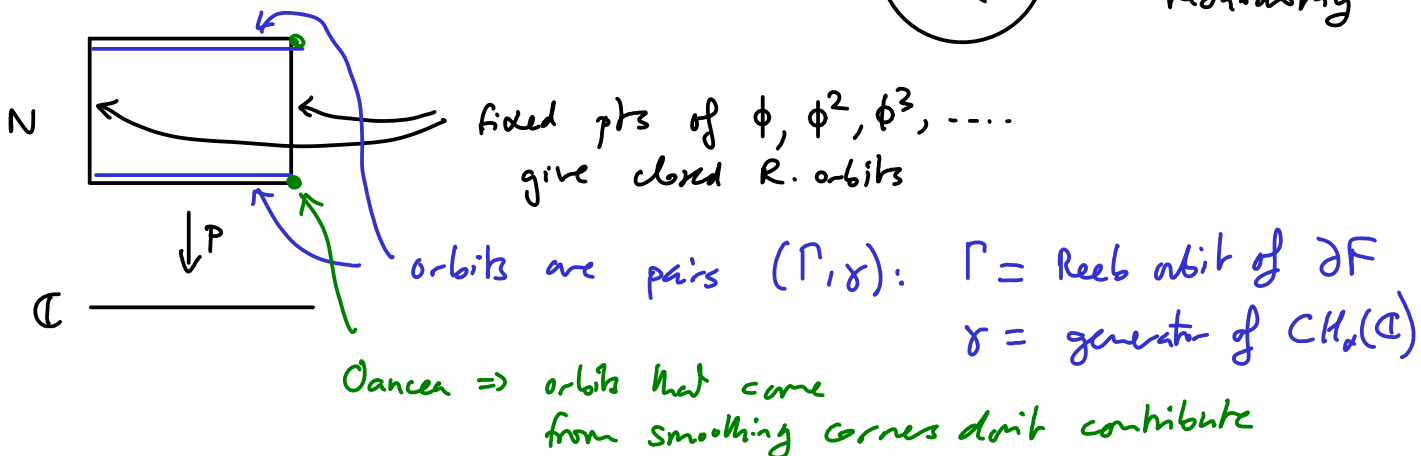 N
fixed pts of ϕ, ϕ², ϕ³, ....
give closed R. orbits
↓ P
orbits are pairs (Γ, γ): Γ = Reeb orbit of ∂F
ℂ
γ = generator of CH_α(ℂ)
Oancea => orbits that come
from smoothing corners don't contribute